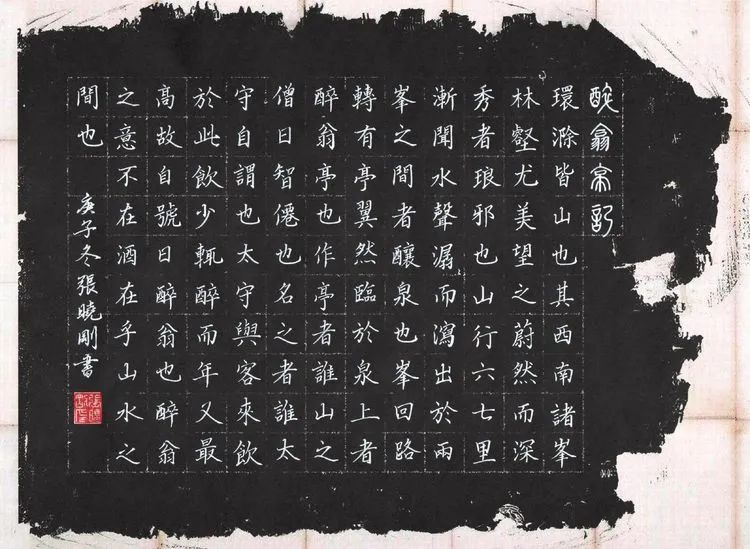 醉翁亭記
環滁皆山也其西南諸峯
林壑尤美望之蔚然而深
秀者琅邪也山行六七里
漸聞水聲潺而瀉出於兩
峯之間者釀泉也峯回路
轉有亭翼然臨於泉上者
醉翁亭也作亭者誰山之
僧曰智僊也名之者誰太
守自謂也太守與客來飲
於此飲少輒醉而年又最
高故自號曰醉翁也醉翁
之意不在酒在乎山水之
間也
庚子冬張曉剛書